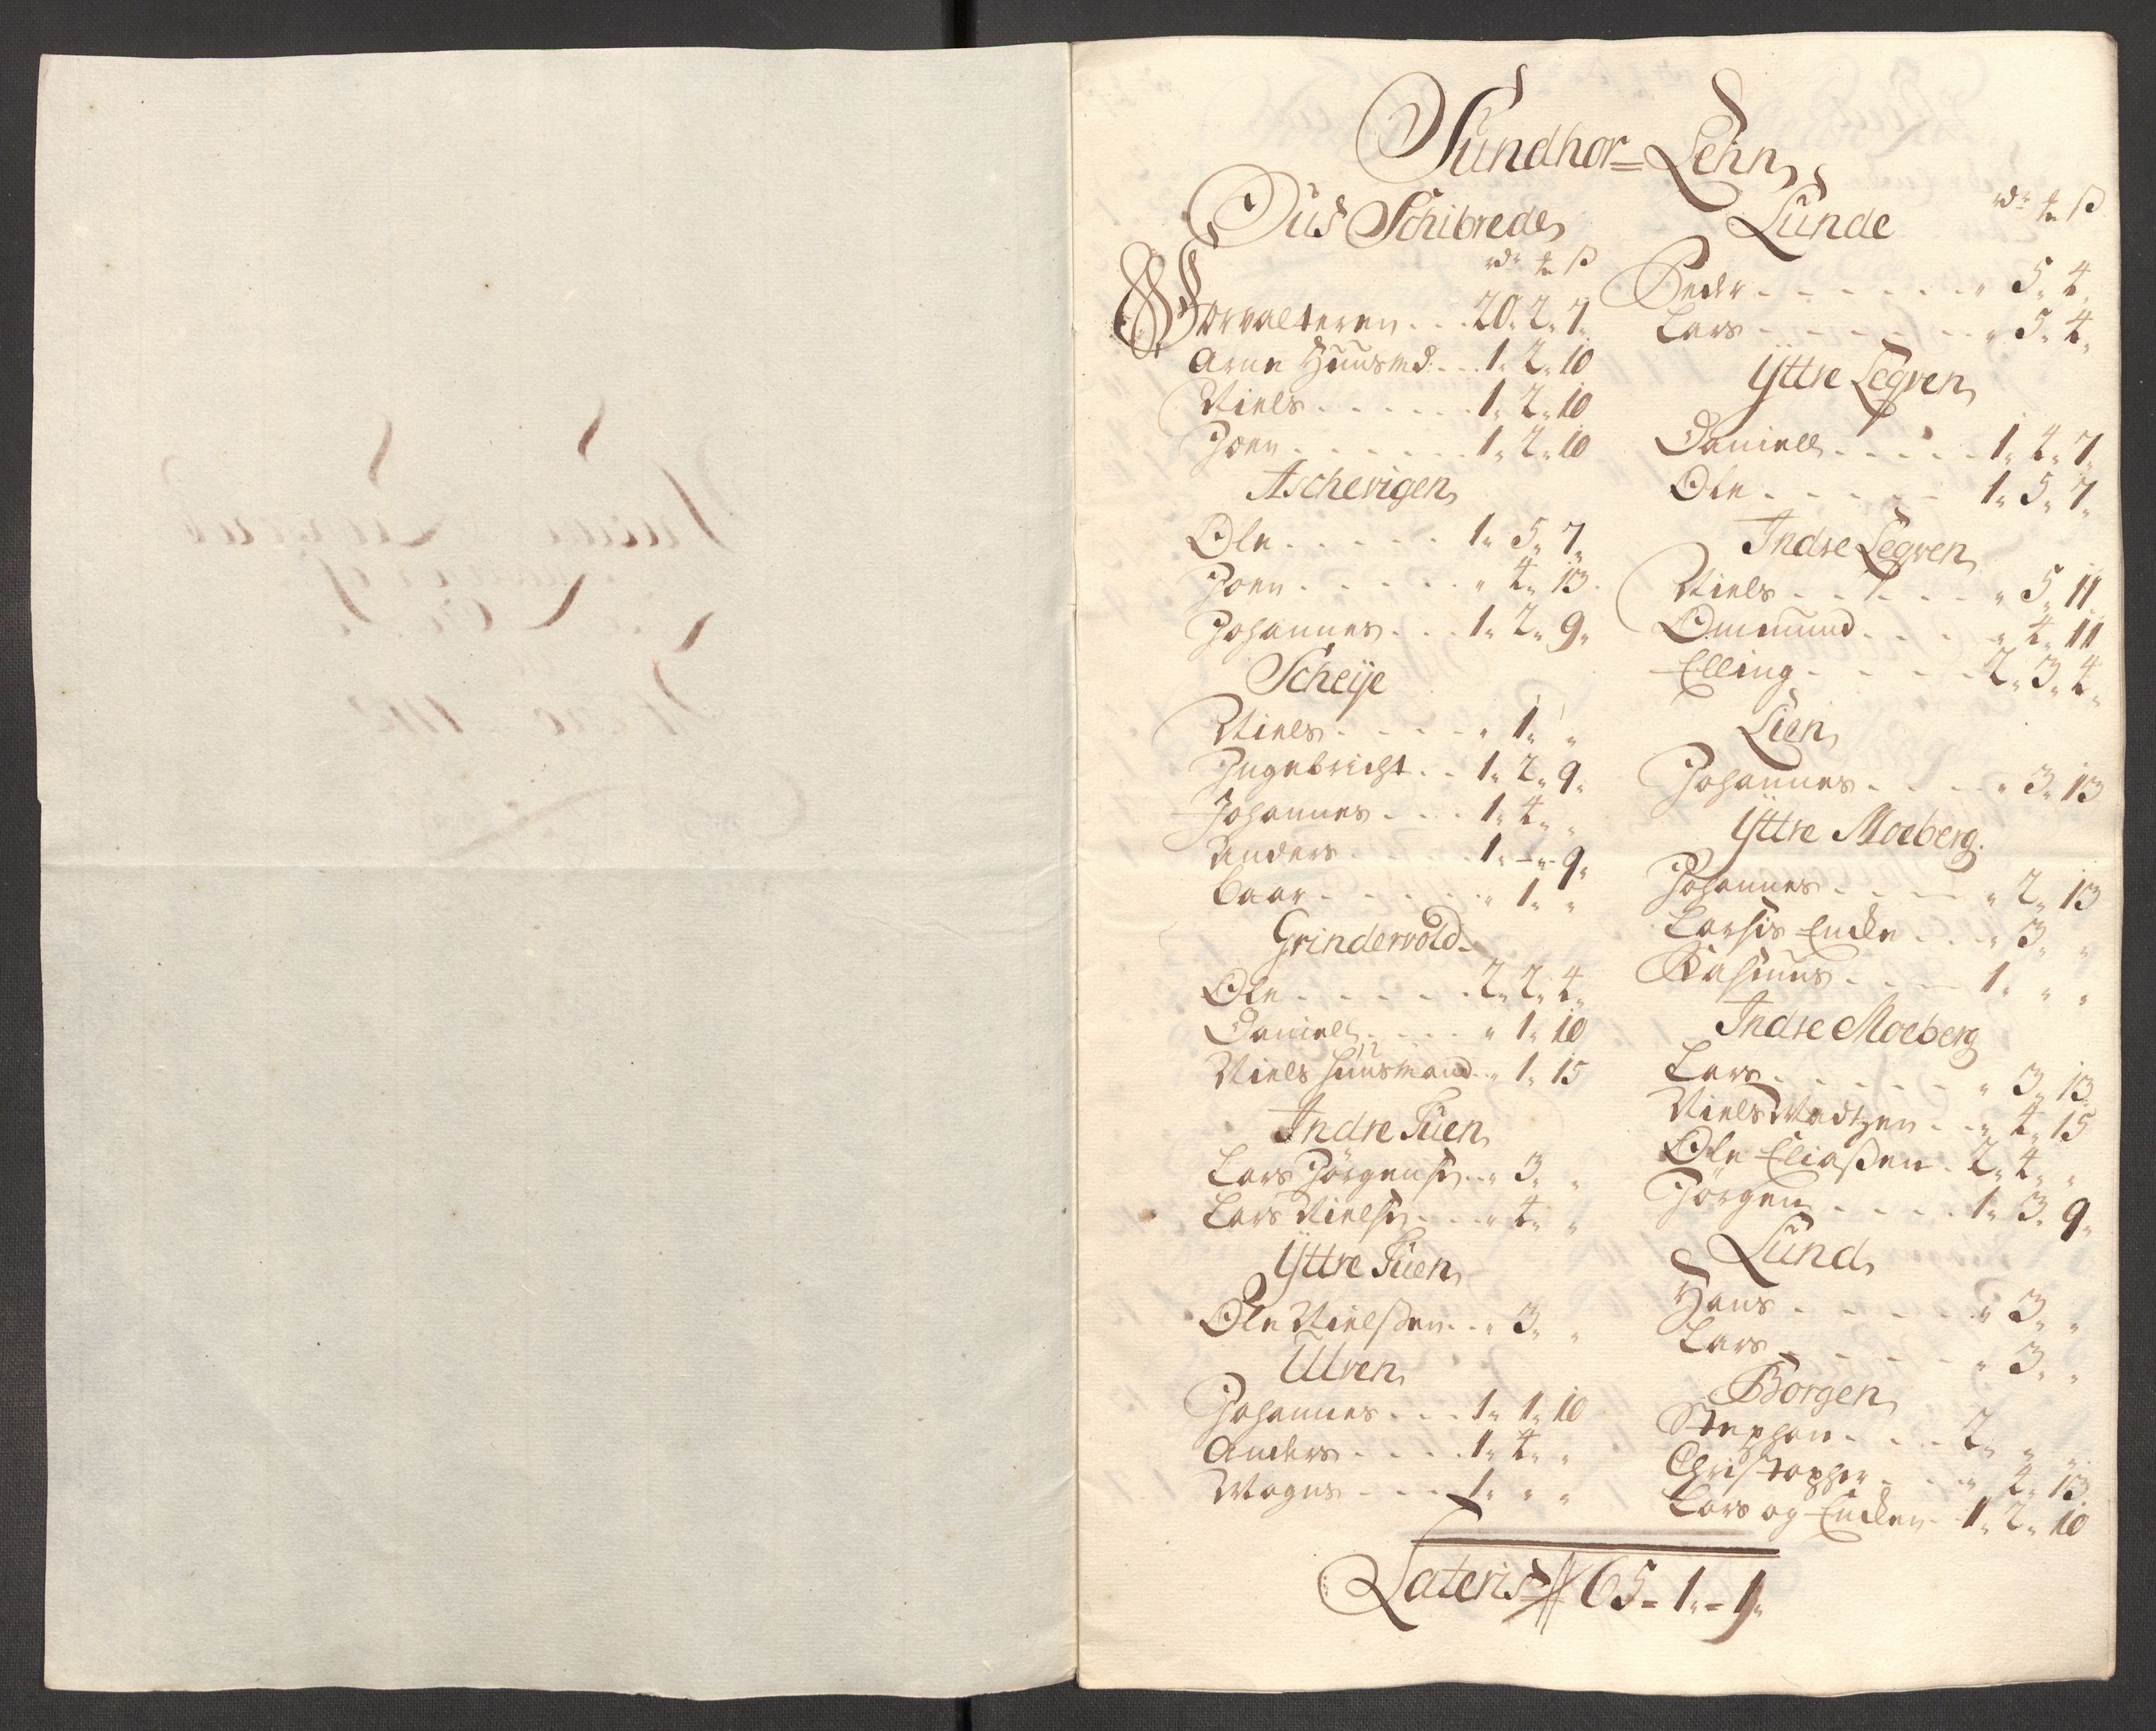 Sundhor=Lehn
Øus Schibrede
rdr mk ß
Forvalteren - - - 20„ 2„ 7„
Arne Huusmd: - - 1„ 2„ 10
Niels - - - - - - 1„ 2„ 10
Joen - - - - - - 1„ 2„ 10
Aschevigen
Ole - - - - - 1„ 5„ 7„
Joen - - - - - „ 4„ 13
Johannes - - - 1„ 2„ 9„
Scheije
Niels - - - - - „ 1„ „
Ingebricht - - 1„ 2„ 9„
Johannes - - - 1„ 4„ „
Anders - - - - 1„ - „ 9„
Baar - - - - - „ 1„ „
Grindervold
Ole - - - - - 2„ 2„ 4„
Daniell - - - - „ 1„ 10
Niels Huusmand - - „ 1„ 15
Indre Tuen
Lars Jørgensen - - „ 3„ „
Lars Nielsen - - - „ 4„ „
Yttre Tuen
Ole Nielsßen - - „ 3„ „
Ulven
Johannes - - - 1„ 1„ 10
Anders - - - - 1„ 4„ „
Mogns - - - - 1„ „ „
Lunde
rdr mk ß
Peder - - - - - - „ 5„ 4„
Lars - - - - - - „ 5„ 4„
Yttre Legren
Daniell - - - - - 1„ 4„ 7„
Ole - - - - - 1„ 5„ 7„
Indre Legren
Niels - - - - - - „ 5„ 11
Ommund - - - - „ 4„ 11
Elling - - - - - 2„ 3„ 4„
Lien
Johannes - - - - „ 3„ 13
Yttre Moeberg
Johannes - - - - „ 2„ 13
Larsis Encke - - - „ 3„ „
Rasmus - - - - 1„ „ „
Indre Moeberg
Lars - - - - - - „ 3„ 13
Niels Madtzen - - „ 4„ 15
Ole Eliaßen - 2„ 4„ „
Jørgen - - - - - 1„ 3„ 9„
Lund
Hans - - - - - „ 3„ „
Lars - - - - - „ 3„ „
Borgen
Stephan - - - - 2„ „ „
Christopher - - - „ 4„ 13
Lars og Encken - 1„ 2„ 10
Lateris 65 - 1„ - 1„